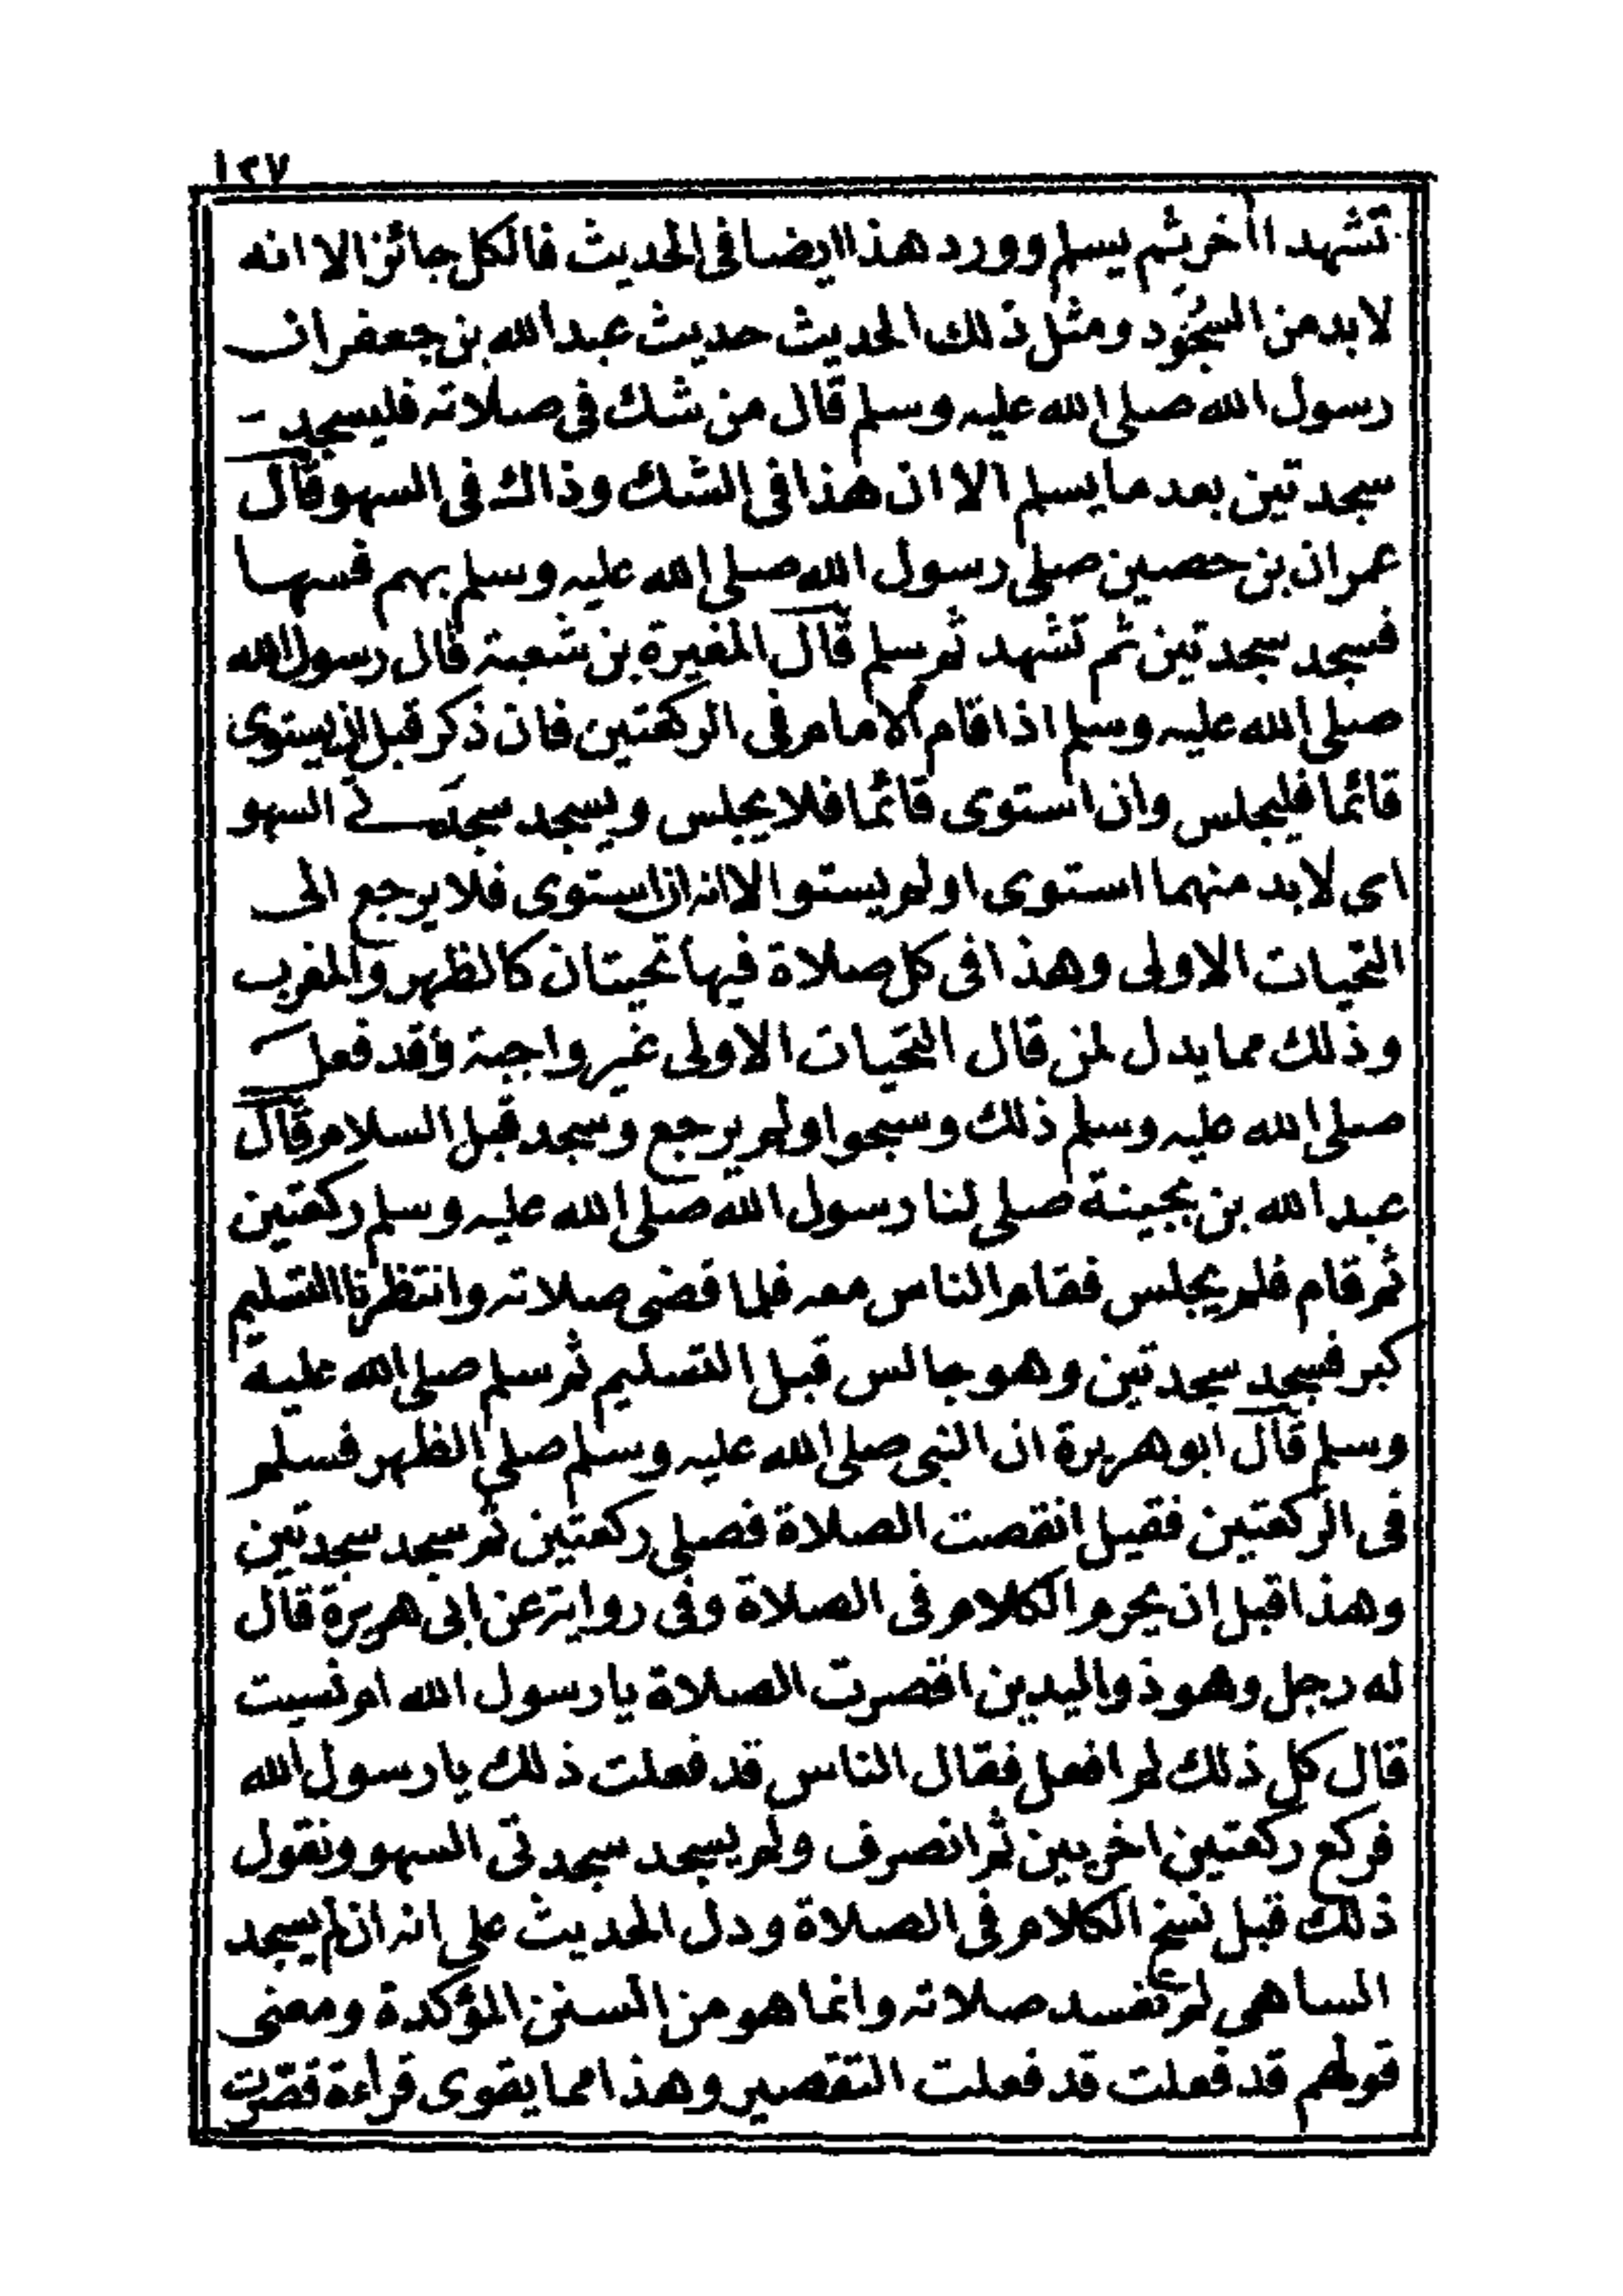 ١٣٧
تشهدا اخر ثم يسلم وورد هذا ايضا فى الحديث فالكل جائز الا انه
لابد من السجود ومثل ذلك الحديث حديث عبد الله بن جعفر ان
رسول الله صلى الله عليه وسلم قال من شك فى صلاته فليسجد
سجدتين بعد ما يسلم الا ان هذا فى الشك وذاك فى السهو قال
عمران بن حصين صلى رسول الله صلى الله عليه وسلم بهم فسها
فسجد سجدتين ثم تشهد ثم سلم قال المغيرة بن شعبة قال رسول الله
صلى الله عليه وسلم اذا قام الامام فى الركعتين فان ذكر قبل ان يستوى
قائما فليجلس وان استوى قائما فلا يجلس ويسجد سجدتى السهو
اى لابد منهما استوى او لم يستوا الا انه ان استوى فلا يرجع الى
التحيات الاولى وهذا فى كل صلاة فيها تحيتان كالظهر والمغرب
وذلك مما يدل لمن قال التحيات الاولى غير واجبة وقد فعل
صلى الله عليه وسلم ذلك وسبحوا ولم يرجع وسجد قبل السلام قال
عبد الله بن بحينة صلى لنا رسول الله صلى الله عليه وسلم ركعتين
ثم قام فلم يجلس فقام الناس معه فلما قضى صلاته وانتظرنا التسليم
كبر فسجد سجدتين وهو جالس قبل التسليم ثم سلم صلى الله عليه
وسلم قال ابو هريرة ان النبى صلى الله عليه وسلم صلى الظهر فسلم
فى الركعتين فقيل انقصت الصلاة فصلى ركعتين ثم سجد سجدتين
وهذا قبل ان يحرم الكلام فى الصلاة وفى رواية عن ابى هريرة قال
له رجل وهو ذو اليدين اقصرت الصلاة يا رسول الله ام نسيت
قال كل ذلك لم افعل فقال الناس قد فعلت ذلك يا رسول الله
فركع ركعتين اخريين ثم انصرف ولم يسجد سجدتى السهو ونقول
ذلك قبل نسخ الكلام فى الصلاة ودل الحديث على انه ان لم يسجد
الساهى لم تفسد صلاته وانما هو من السنن المؤكدة ومعنى
قولهم قد فعلت قد فعلت التقصير وهذا مما يقوى قراءة قصّرت